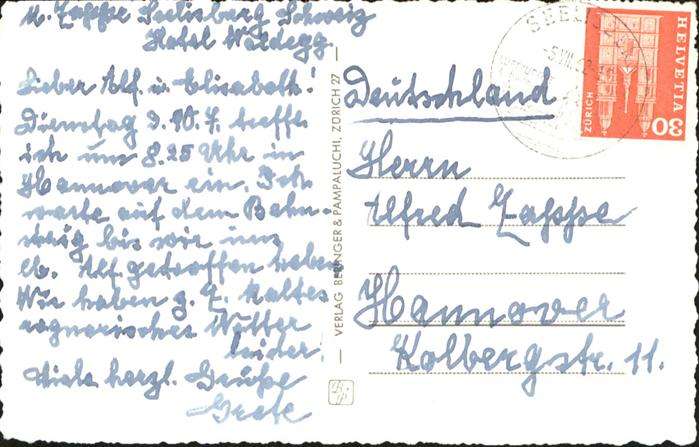 M. Zassße Seelisberg Schweiz
Hotel Waldegg.
Lieber Alf. u. Elisabeth!
Dienstag 9.10.7. treffe
ich um 8.25 Uhr in
Hannover ein. Ich
warte auf dem Bahn-
steig bis wir uns
lb. Alf getroffen haben
Wir haben g. Z. kaltes
regnerisches Wetter
leider.
Viele herzl. Grüße
Grete
VERLAG BERINGER & PAMPALUCHI, ZÜRICH 27
Deutschland
Herrn
Alfred
Hannover
Kolbergstr. 11.
HELVETIA
ZÜRICH
30